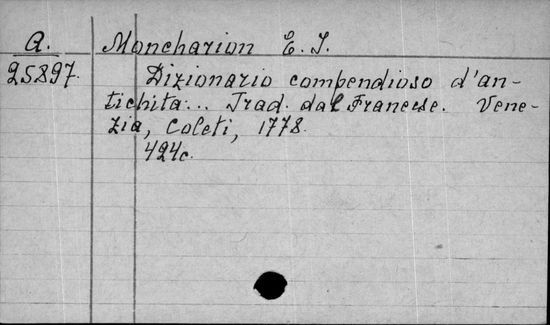 A. Moncharion E. J.
25897. Dizionario compendioso d'an-
tichita... Trad. dal Francese. Vene-
zia, Coleti, 1778.
424c.